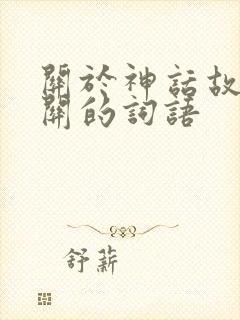 關於神話故
關的詞語
舒薪